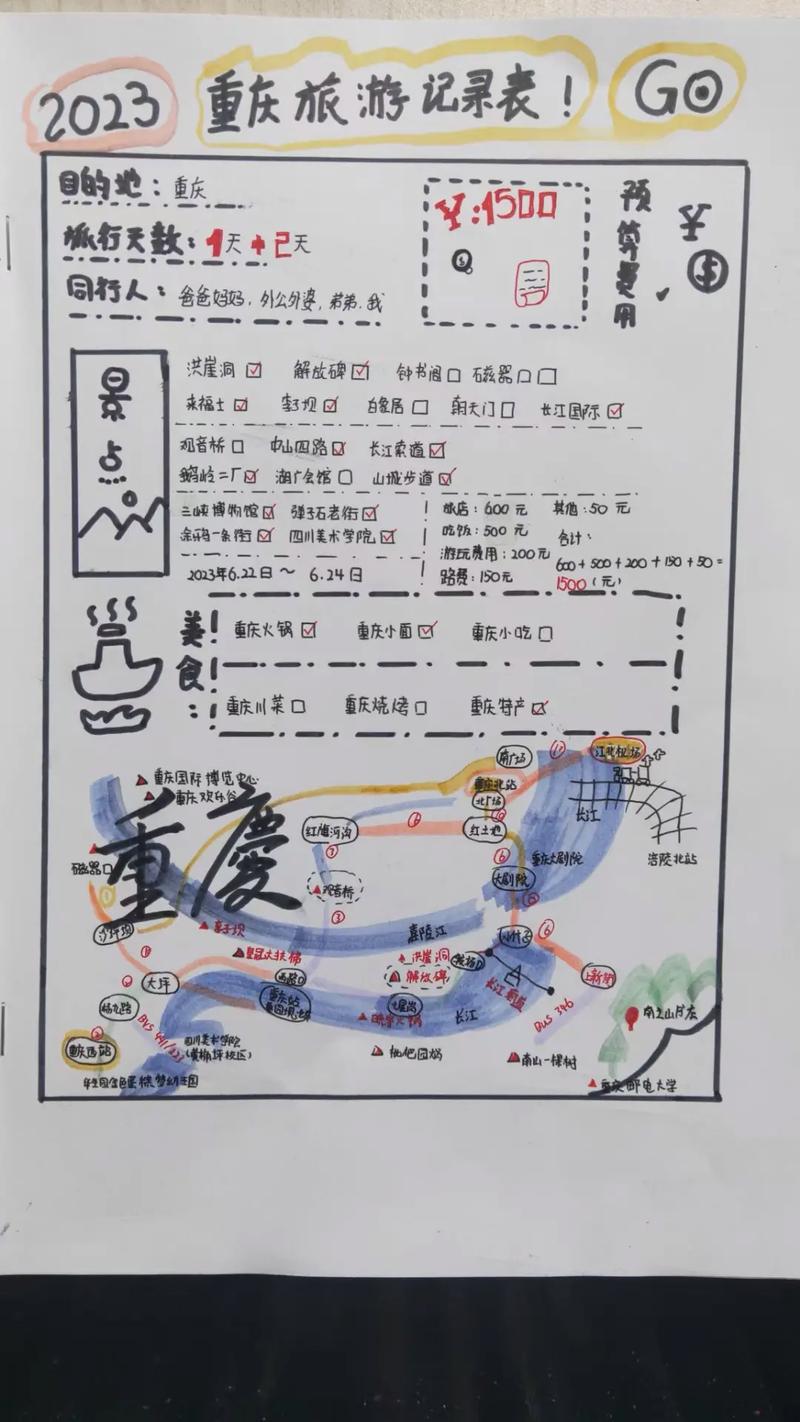 2023 重庆旅游记录表！ GO
目的地：重庆
旅行天数：1天+2天
同行人：爸爸妈妈，外公外婆，弟弟.我
¥:1500
预算费用 ¥ $
景点
洪崖洞☑ 解放碑☑ 钟书阁☐ 磁器口☐
来福士☑ 李子坝☑ 白象居☐ 朝天门☐ 长江国际☑
观音桥☐ 中山四路☑ 长江索道☑
鹅岭二厂☑ 湖广会馆☐ 山城步道☑
三峡博物馆☑ 弹子石老街☑
涂鸦一条街☑ 四川美术学院☑
2023年6.22日～6.24日
旅店：600元 其他：50元
吃饭：500元 合计：
游玩费用：200元 600+500+200+150+50=
路费：150元 1500(元)
美食：
重庆火锅☑ 重庆小面☑ 重庆小吃☐
重庆川菜☐ 重庆烧烤☐ 重庆特产☑
重庆
南广场
江北机场
重庆国际博览中心
重庆北站
重庆欢乐谷
北广场
长江
红旗河沟
红土地
重庆大剧院
涪陵北站
磁器口
观音桥
③
大剧院
⑥
沙坪坝
李子坝
嘉陵江
小什字
⑥
皇冠大扶梯
洪崖洞
大坪
解放碑
上新街
重庆站
七星岗
长江索道
杨九路
长江
Bus 346
南之山书店
四川美术学院
(黄桷坪校区)
重庆西站
枇杷园
南山一棵树
重庆邮电大学